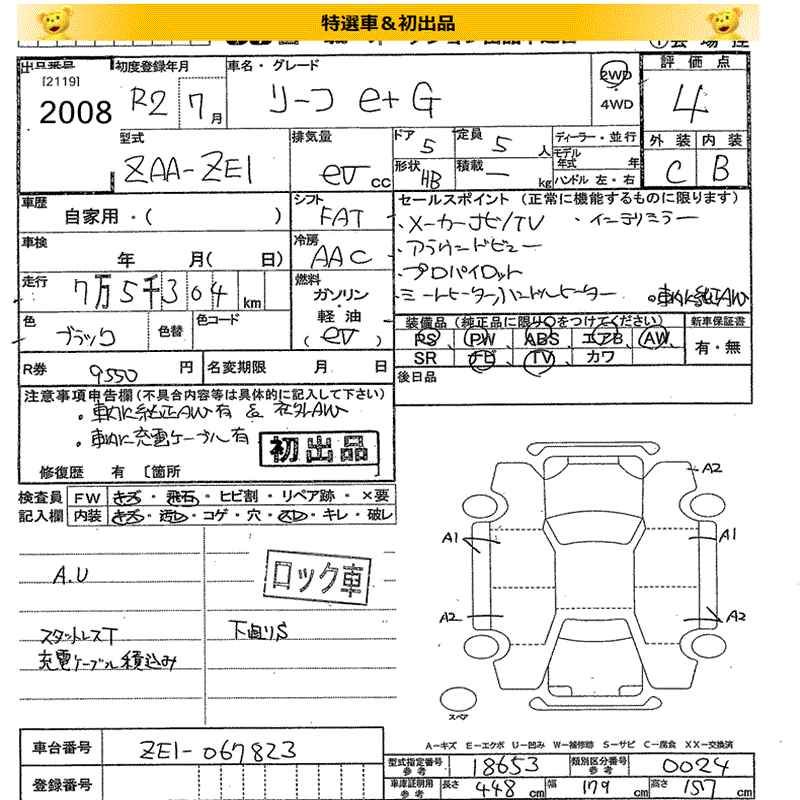 特選車&初出品
出品番号
[2119]
2008
初度登録年月
R2 7月
車名・グレード
リーフ e+ G
2WD
・
4WD
評価点
4
外装 内装
C B
型式
ZAA-ZE1
排気量
ev cc
ドア 5
定員 5 人
形状 HB
積載 ー kg
ディーラー・並行
モデル年式 年
ハンドル 左・右
車歴
自家用・( )
シフト
FAT
車検
年 月( 日)
冷房
AAC
走行
7万5千304km
燃料
ガソリン
・
軽油
(ev)
色
ブラック
色替
色コード
R券 9550円
名変期限 月 日
セールスポイント (正常に機能するものに限ります)
・メーカーナビ/TV ・インテリミラー
・アラウンドビュー
・プロパイロット
・シートヒーター,ハンドルヒーター 。車内に純正AW
装備品 (純正品に限り○をつけてください)
新車保証書
PS PW ABS エアB AW
有・無
SR ナビ TV カワ
後日品
注意事項申告欄(不具合内容等は具体的に記入して下さい)
・車内に純正AW有 & 社外AW
・車内に充電ケーブル有
初出品
修復歴 有 〔箇所
検査員
記入欄
FW キズ・飛石・ヒビ割・リペア跡・×要
内装 キズ・汚レ・コゲ・穴・スレ・キレ・破レ
A.U
ロック車
スタットレスT
充電ケーブル積込み
下廻りS
A2
A1
A1
A2
A2
スペア
A-キズ E-エクボ U-凹み W-補修跡 S-サビ C-腐食 XX-交換済
車台番号
ZE1-067823
登録番号
型式指定番号
参考
18653
類別区分番号
参考
0024
車庫証明用
参考
長さ 448cm
幅 179cm
高さ 157cm